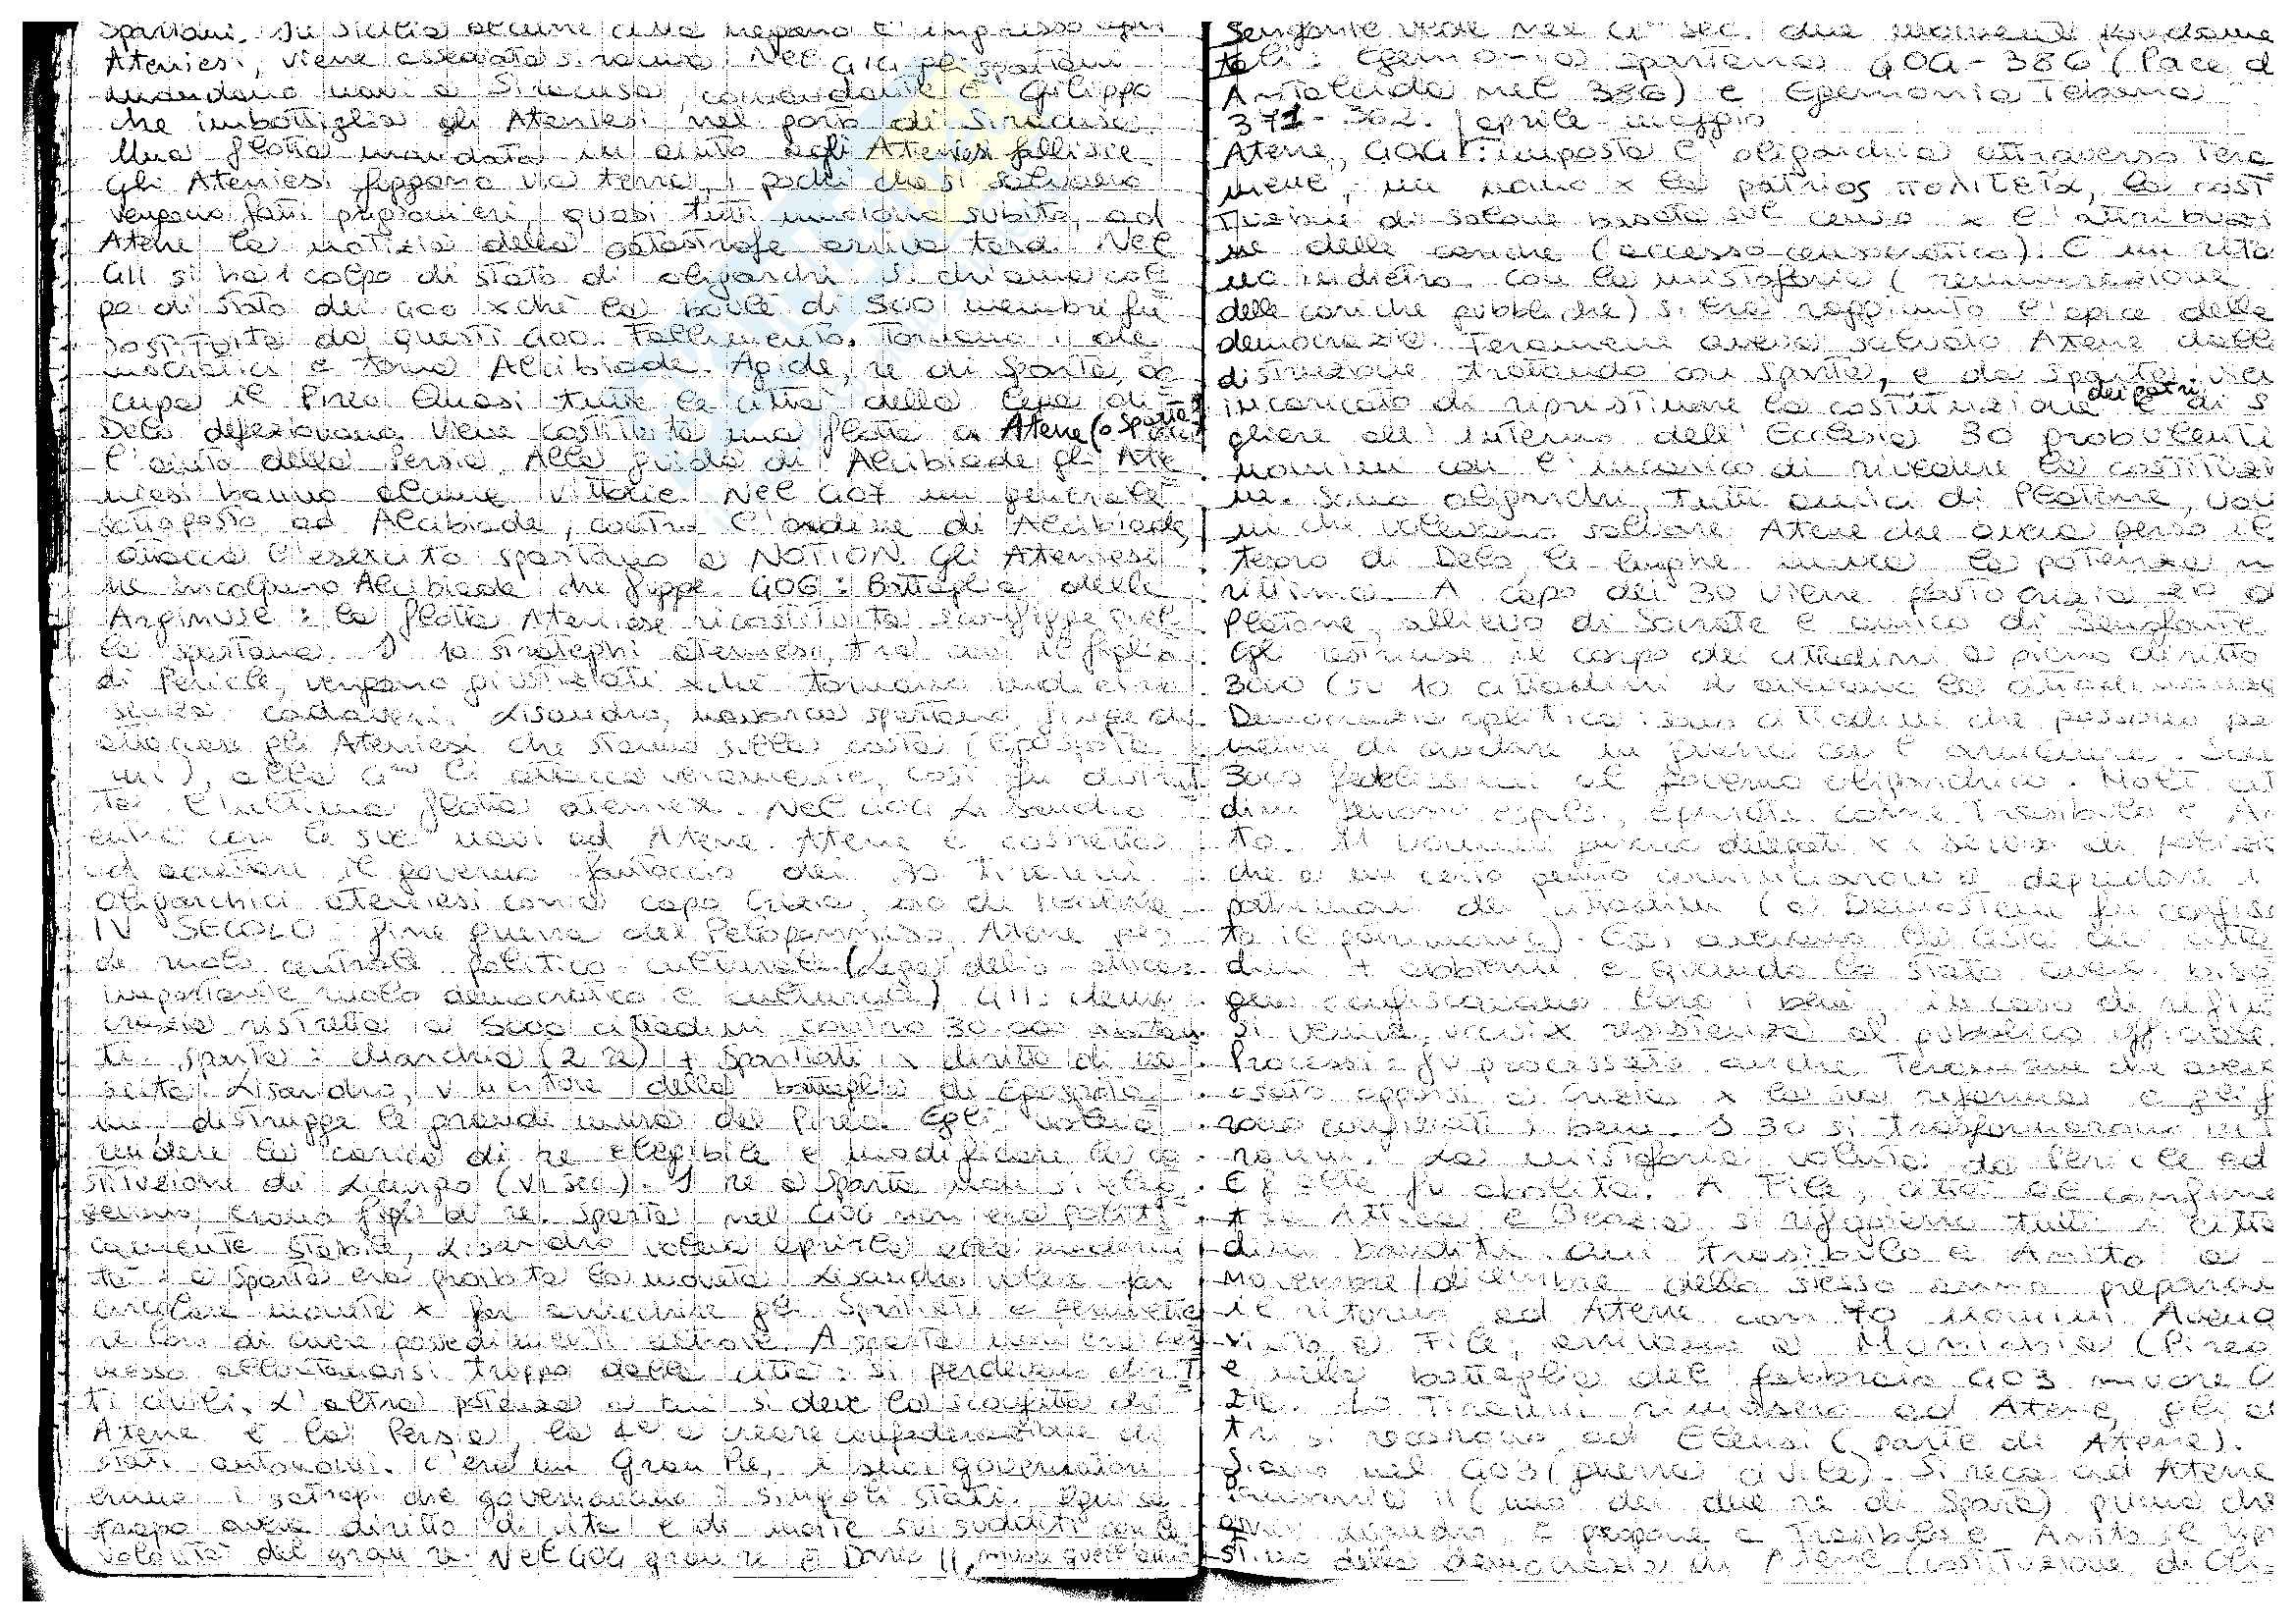 Spartani. In Sicilia alcune città negano l'ingresso agli
Ateniesi, viene assediata Siracusa. Nel 414 gli spartani
mandano navi a Siracusa, comandante è Gilippo
che imbottiglia gli Ateniesi nel porto di Siracusa.
Una flotta mandata in aiuto agli Ateniesi fallisce.
Gli Ateniesi fuggono via terra, i pochi che si salvano
vengono fatti prigionieri, quasi tutti muoiono subito, ad
Atene la notizia della catastrofe arriva tardi. Nel
411 si ha 1 colpo di stato di oligarchi. Si chiama col=
po di stato dei 400 xchè la boulè di 500 membri fu
sostituita da questi 400. Fallimento. Tornano i de
mocratici e torna Alcibiade. Agide, re di Sparta, oc
cupa il Pireo. Quasi tutte le città della lega di
Delo defezionano. Viene costituita una flotta a Atene (o Sparta?)
l'aiuto della Persia. Alla guida di Alcibiade gli Ate
niesi hanno alcune vittorie. Nel 407 un generale
sottoposto ad Alcibiade, contro l'ordine di Alcibiade,
attacca l'esercito spartano a NOTION. Gli Ateniesi
ne incolpano Alcibiade che fugge. 406: Battaglia delle
Arginuse: la flotta Ateniese ricostituita sconfigge quel
la spartana. I 10 strateghi ateniesi, tra cui il figlio
di Pericle, vengono giustiziati xchè tornano indietro
senza cadaveri. Lisandro, navarco spartano, finge di
attaccare gli Ateniesi che stanno sulla costa (Egospota
mi), alla 4ª li attacca veramente, così fu distrut
ta l'ultima flotta ateniese. Nel 404 Lisandro
entra con le sue navi ad Atene. Atene è costretta
ad accettare il governo fantoccio dei 30 tiranni
oligarchici ateniesi con a capo Crizia, zio di Platone
IV SECOLO: fine guerra del Peloponneso, Atene per
de ruolo centrale politico-culturale (Lega delio-attica:
importante ruolo democratico e culturale) 411: demo
crazia ristretta a 5000 cittadini contro 30.000 abitan
ti. Sparta: diarchia (2 re) + Spartiati x diritto di na=
scita. Lisandro, vincitore della battaglia di Egospota=
mi, distrugge le grandi mura del Pireo. Egli voleva
rendere la carica di re eleggibile e modificare la co
stituzione di Licurgo (VI sec). I re a Sparta non si eleg
gevano, erano figli di re. Sparta nel 404 non era politi
camente stabile, Lisandro voleva aprirla alla moderni
tà: a Sparta era proibita la moneta. Lisandro voleva far
circolare monete x far arricchire gli Spartiati e permette
re loro di avere possedimenti altrove. A Sparta non era per
messo allontanarsi troppo dalla città: si perdevano dirit
ti civili. L'altra potenza a cui si deve la sconfitta di
Atene è la Persia, la 1ª a creare confederazione di
stati autonomi. C'era un Gran Re, i suoi governatori
erano i satrapi che governavano i singoli stati. Ogni sa
trapo aveva diritto di vita e di morte sui sudditi con la
volontà del gran re. Nel 404 gran re è Dario II, muore quell'anno
Senofonte vede nel 4° sec. due momenti fondame
tali: Egemonia spartana 404-386 (Pace d
Antalcida nel 386) e Egemonia Tebana
371-362. aprile maggio
Atene, 404: imposta l'oligarchia attraverso Tera
mene, un uomo x la patrios πολιτεία, la cost
tuzione di Solone basata sul censo x l'attribuzi
ne delle cariche (accesso censocratico). È un rito
no indietro. Con la mistoforia (remunerazione
delle cariche pubbliche) si era raggiunto l'apice della
democrazia. Teramene aveva salvato Atene dalla
distruzione trattando con Sparta, e da Sparta vien
incaricato di ripristinare la costituzione dei patri e di s
gliere all'interno dell'Ecclesia 30 probulenti
uomini con l'incarico di rivedere la costituzi
ne. Sono oligarchi, tutti amici di Platone, uom
ni che volevano salvare Atene che aveva perso il
tesoro di Delo, le lunghe mura, la potenza m
rittima. A capo dei 30 viene posto Crizia zio d
Platone, allievo di Socrate e amico di Senofonte
Egli estinse il corpo dei cittadini a pieno diritto
3000 (su 10 cittadini 1 aveva la cittadinanza
Democrazia oplitica: sono cittadini che possono pe
mettersi di andare in guerra con l'armatura. Son
3000 fedelissimi al governo oligarchico. Molti cit
dini furono espulsi, epurati come Trasibulo e An
to. 11 uomini furono delegati x i servizi di polizia
che a un certo punto cominciarono a depredare i
patrimoni dei cittadini (a Demostene fu confisc
to il patrimonio). Essi avevano la lista dei citta
dini + abbienti e quando lo stato aveva biso
gno confiscavano loro i beni, in caso di rifiut
si veniva uccisi x resistenza al pubblico ufficiale.
Processi: fu processato anche Teramene che aveva
osato opporsi a Crizia x la sua riforma e gli f
rono confiscati i beni. I 30 si trasformarono in t
ranni. La mistoforia voluta da Pericle ed
Efialte fu abolita. A File, città al confine
tra Attica e Beozia si rifugiano tutti i citta
dini banditi. Qui Trasibulo e Anito a
Novembre/dicembre dello stesso anno preparano
il ritorno ad Atene con 70 uomini. Aveva
vinto a File, arrivano a Munichia (Pireo
e nella battaglia del febbraio 403 muore C
zia. 10 Tiranni rimasero ad Atene, gli a
tri si recarono ad Eleusi (parte di Atene).
Siamo nel 403 (guerra civile). Si reca ad Atene
Pausania II (uno dei due re di Sparta) prima che
arrivi Lisandro. E propone a Trasibulo e Anito il ripr
stino della democrazia in Atene (costituzione di Cli=